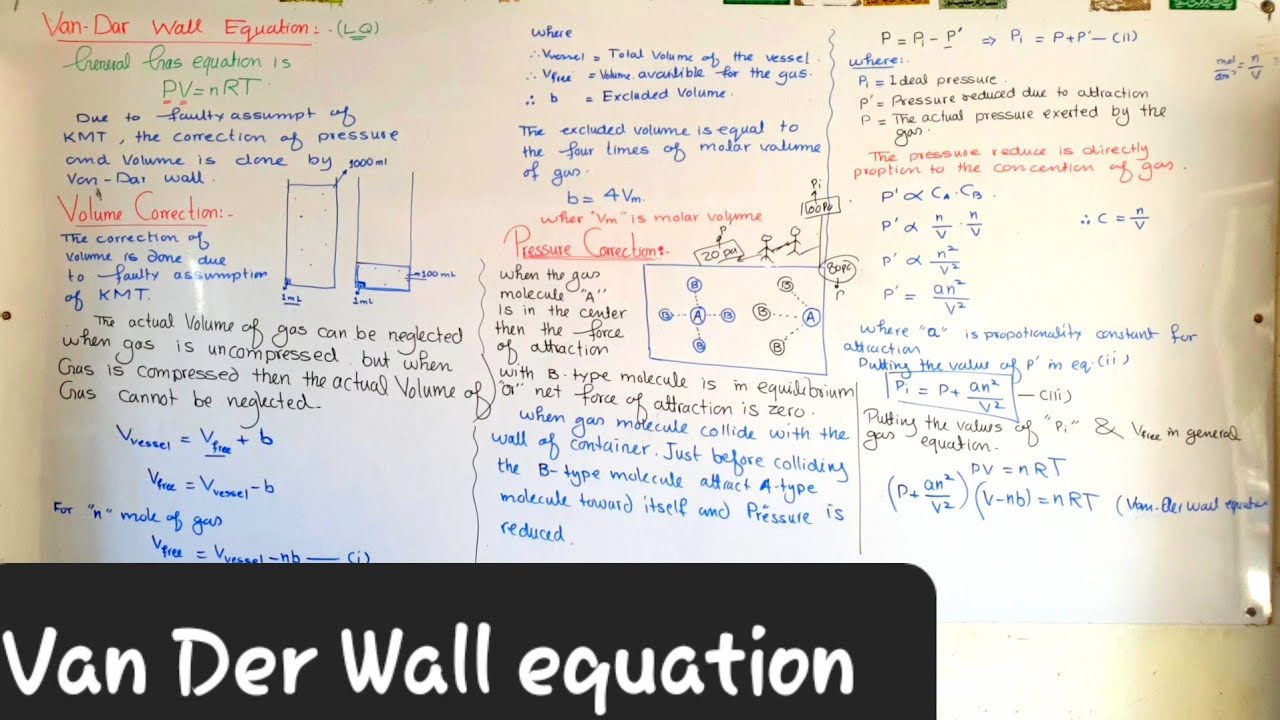 Van-Dar Wall Equation:-(LQ)
General Gas equation is
PV=nRT.
Due to faulty assumpt of
KMT, the correction of pressure
and Volume is done by
Van-Dar wall.
1000 ml
Volume Correction:-
The correction of
volume is done due
to faulty assumption
of KMT.
1mL
1mL
100 mL
The actual Volume of gas can be neglected
when gas is uncompressed but when
Gas is compressed then the actual Volume of
Gas cannot be neglected.
Vvessel = Vfree + b
Vfree = Vvessel - b
For "n" mole of gas
Vfree = Vvessel - nb — (i)
where
∴ Vvessel = Total Volume of the vessel.
∴ Vfree = Volume availible for the gas.
∴ b = Excluded Volume.
The excluded volume is equal to
the four times of molar valume
of gas.
b = 4Vm.
wher "Vm" is molar volyme
Pressure Correction:-
Pi
100Pa
P
20 pa
80pa
P
B
B A B
B
B
B A
B
when the gas
molecule "A"
is in the center
then the force
of attraction
with B-type molecule is in equilibrium
"or" net force of attraction is zero.
when gas molecule collide with the
wall of container. Just before colliding
the B-type molecule attract A-type
molecule toward itself and Pressure is
reduced.
P = Pi - P' ⇒ Pi = P+P' — (ii)
mol/dm³ = n/V
where:-
Pi = Ideal pressure.
P' = Pressure reduced due to attraction
P = The actual pressure exerted by the
gas.
The pressure reduce is directly
proption to the concention of gas.
P' ∝ CA.CB
P' ∝ n/V . n/V ∴ C = n/V
P' ∝ n²/V²
P' = an²/V²
where "a" is propotionality constant for
attraction
Putting the value of P' in eq.(ii)
Pi = P+ an²/V² — (iii)
Putting the values of "Pi" & Vfree in general
gas equation.
PV = nRT
(P+ an²/V²) (V-nb) = nRT (Van-Der wall equation
Van Der Wall equation